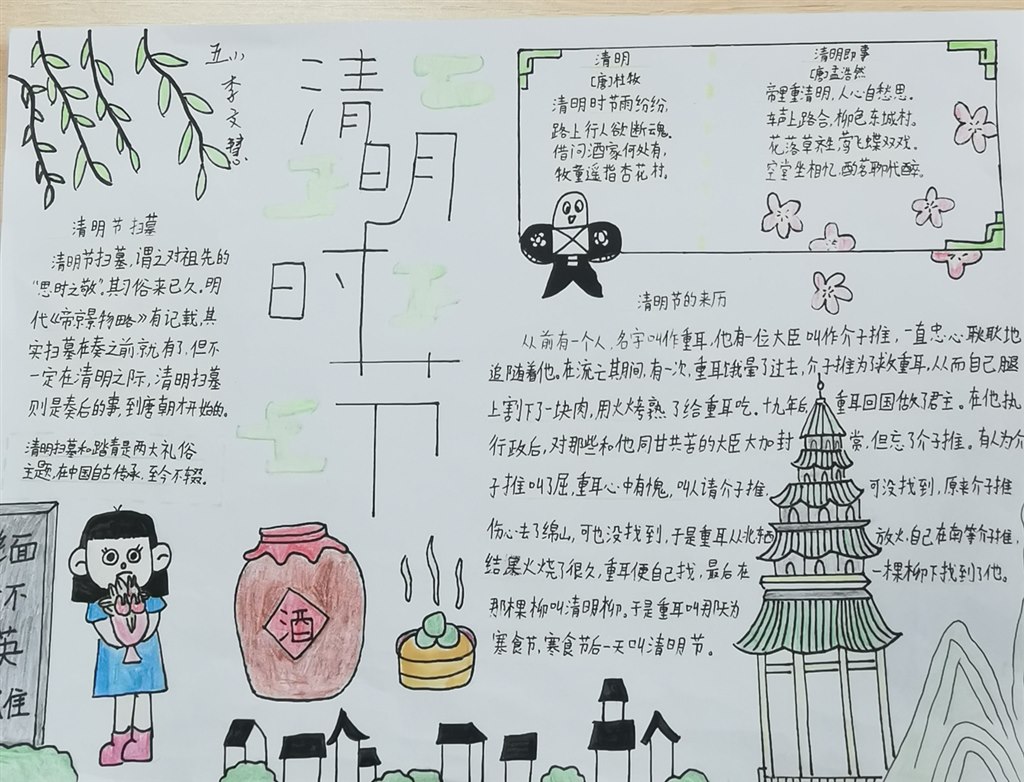 五小
李文慧
清明时节
清明
[唐]杜牧
清明时节雨纷纷,
路上行人欲断魂。
借问酒家何处有,
牧童遥指杏花村。
清明即事
[唐]孟浩然
帝里重清明,人心自愁思。
车声上路合,柳色东城村。
花落草齐生,莺飞蝶双戏。
空堂坐相忆,酌茗聊代醉。
清明节扫墓
清明节扫墓,谓之对祖先的
"思时之敬",其习俗来已久。明
代《帝京景物略》有记载,其
实扫墓在秦之前就有了,但不
一定在清明之际,清明扫墓
则是秦后的事,到唐朝才开始的。
清明扫墓和踏青是两大礼俗
主题,在中国自古传承,至今不辍。
清明节的来历
从前有一个人,名字叫作重耳,他有一位大臣叫作介子推,一直忠心耿耿地
追随着他。在流亡期间,有一次,重耳饿晕了过去,介子推为了救重耳,从而自己腿
上割下了一块肉,用火烤熟了给重耳吃。十九年后,重耳回国做了君主。在他执
行政后,对那些和他同甘共苦的大臣大加封赏,但忘了介子推。有人为介
子推叫了屈,重耳心中有愧,叫人请介子推,可没找到,原来介子推
伤心去了绵山,可也没找到,于是重耳从北西放火,自己在南等介子推,
结果火烧了很久,重耳便自己找,最后在一棵柳下找到了他。
那棵柳叫清明柳。于是重耳叫那天为
寒食节,寒食节后一天叫清明节。
酒
缅
不
英